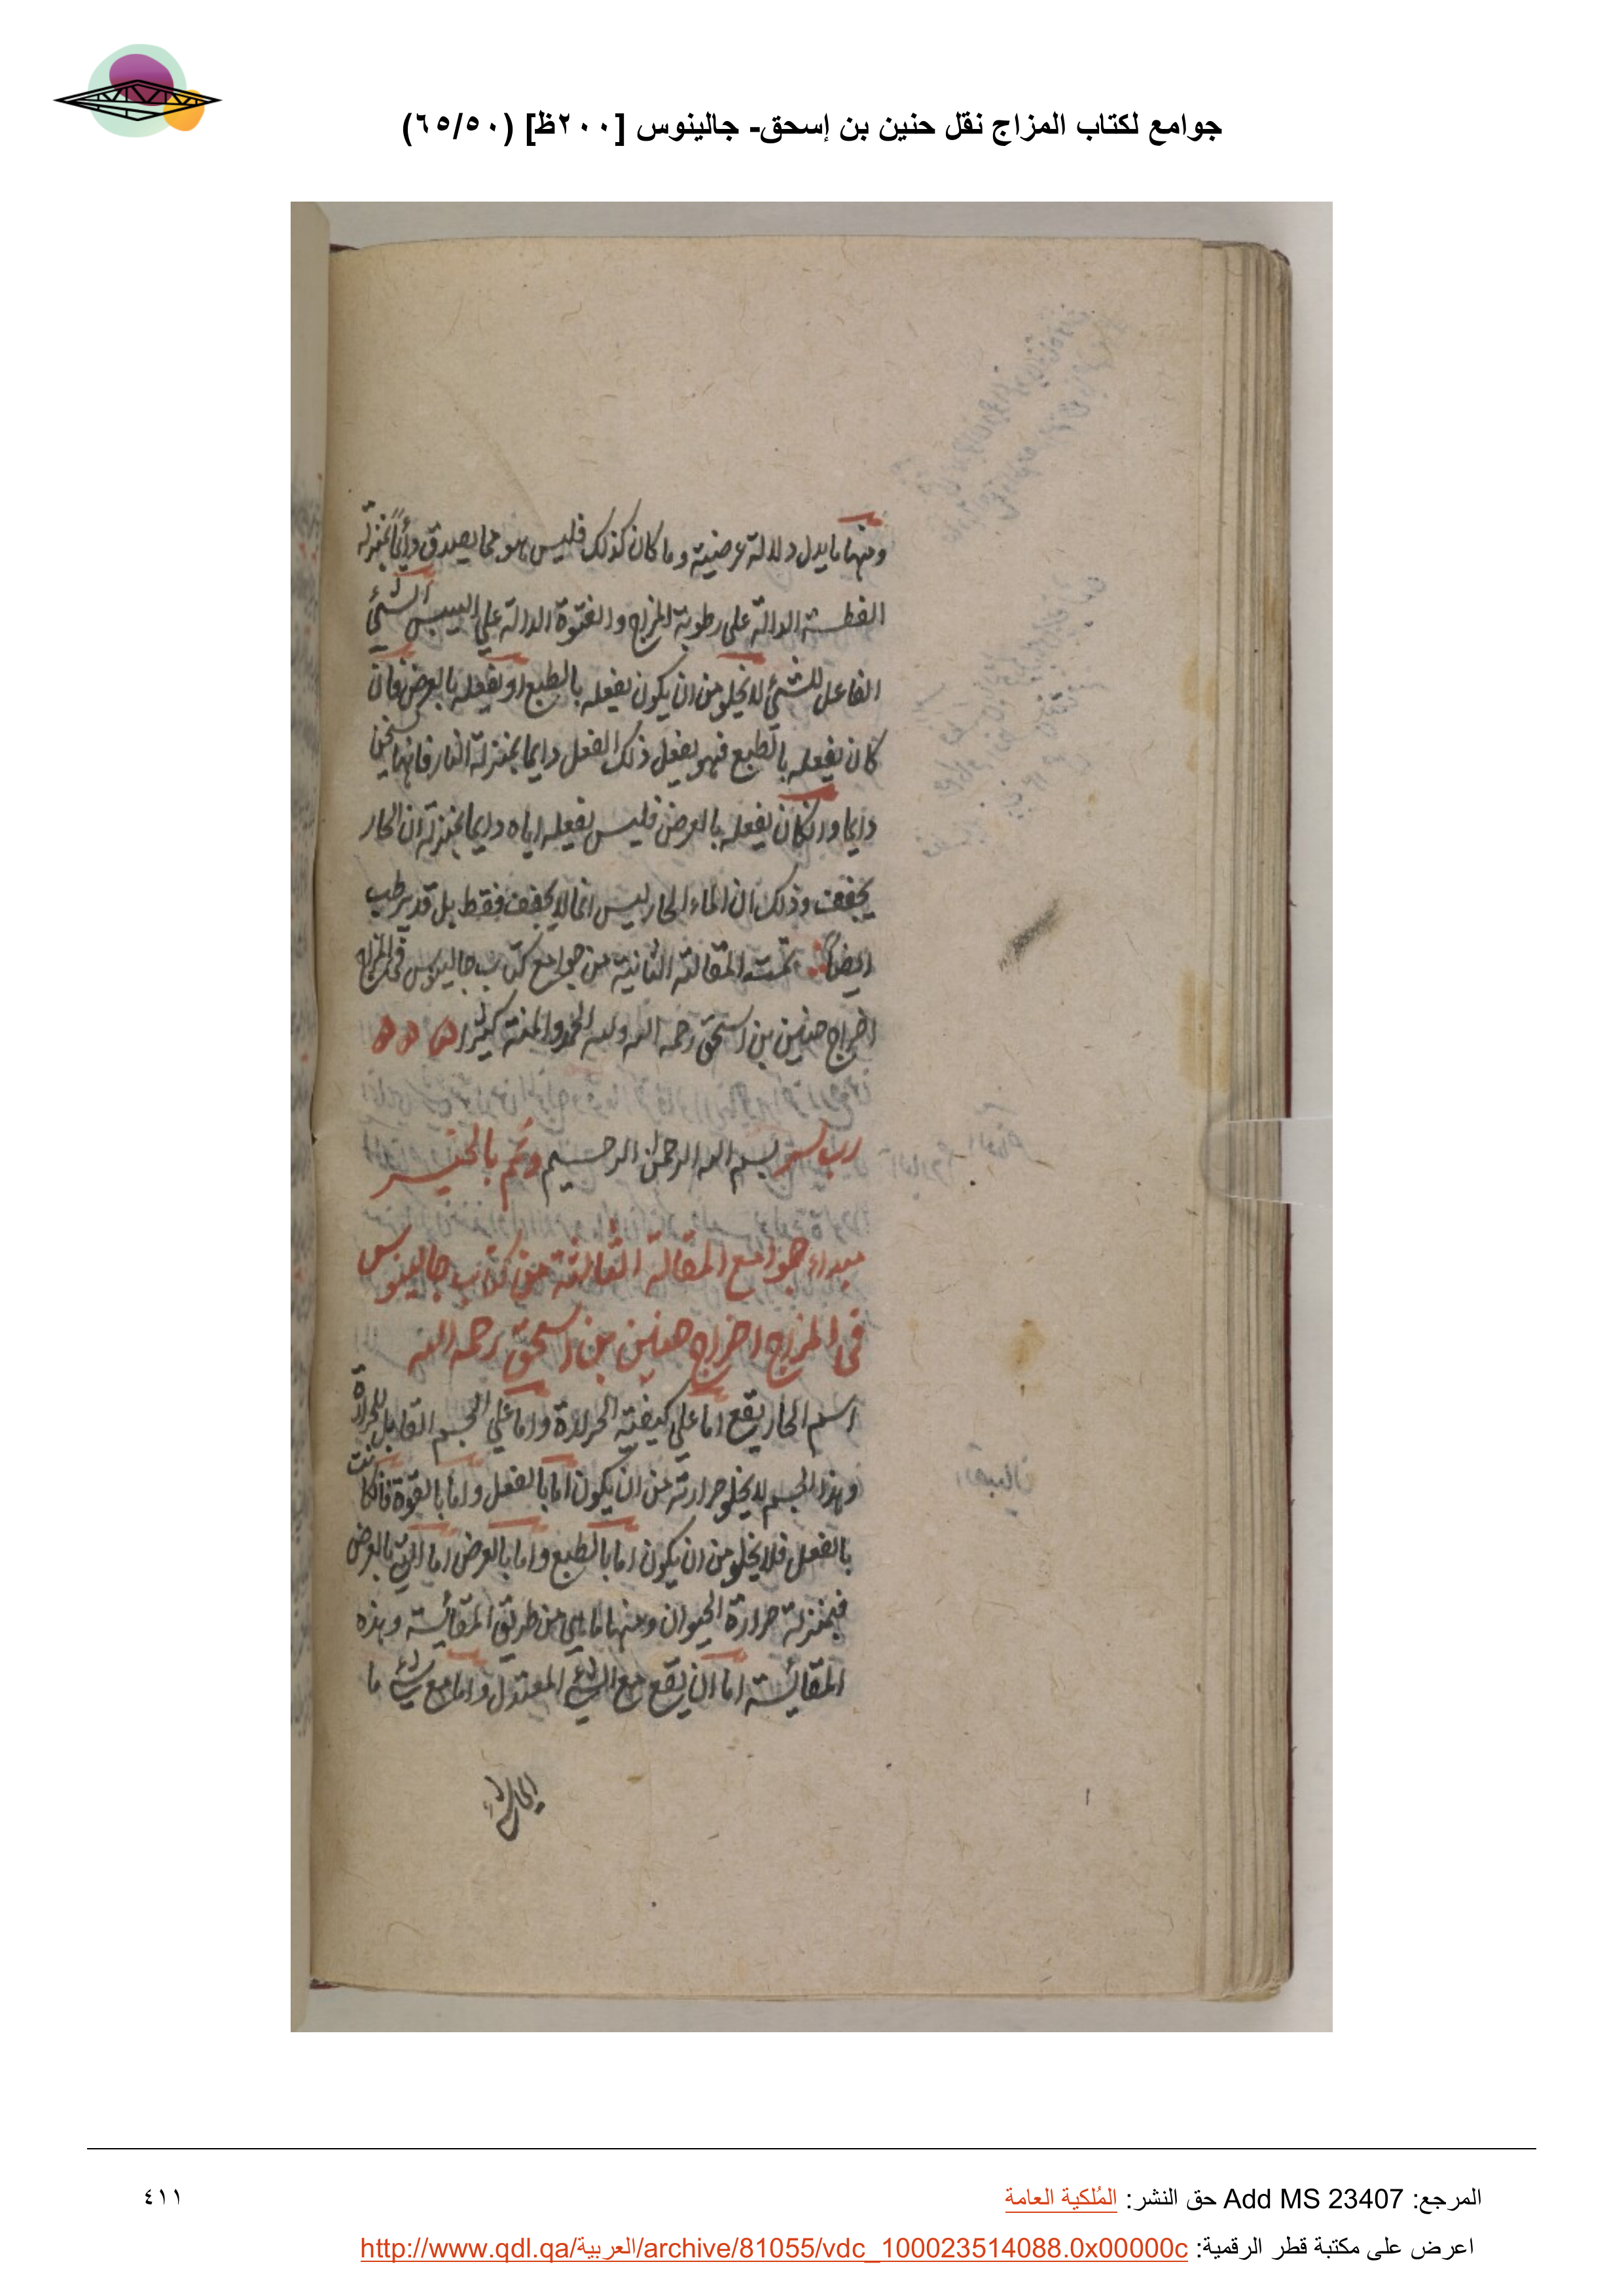 جوامع لكتاب المزاج نقل حنين بن إسحق- جالينوس [٢٠٠ظ] (٦٥/٥٠)
ومنها ما يدل دلالة عرضية وما كان كذلك فليس هو مما يصدق دائماً بمنزلة
الفطسة الدالة على رطوبة المزاج والفتوة الدالة على اليبس الشيء
الفاعل للشيء لا يخلو من ان يكون يفعله بالطبع او يفعله بالعرض فان
كان يفعله بالطبع فهو يفعل ذلك الفعل دايما بمنزلة النار فانها تسخن
دايما وان كان يفعله بالعرض فليس يفعله اياه دايما بمنزلة ان الحار
يجفف وذلك ان الماء الحار ليس انما لا يجفف فقط بل قد يرطب
ايضاً تمت المقالة الثانية من جوامع كتاب جالينوس في المزاج
اخراج حنين بن اسحق رحمه الله ولله الحمد والمنة كثيرا ه ه ه
رب يسر بسم الله الرحمن الرحيم وتمم بالخير
مبداء جوامع المقالة الثالثة من كتاب جالينوس
في المزاج اخراج حنين بن اسحق رحمه الله
اسم الحار يقع اما على كيفية الحرارة واما على الجسم القابل للحرارة
وهذا الجسم لا يخلو حرارته من ان يكون اما بالفعل واما بالقوة فان كانت
بالفعل فلا يخلو من ان يكون اما بالطبع واما بالعرض اما التي بالعرض
فبمنزلة حرارة الحيوان ومنها ما هي من طريق المقائسة وهذه
المقائسة اما ان يقع مع الشيء المعتدل واما مع شيء ما
المرجع: Add MS 23407 حق النشر: المُلكية العامة
٤١١
اعرض على مكتبة قطر الرقمية: http://www.qdl.qa/العربية/archive/81055/vdc_100023514088.0x00000c